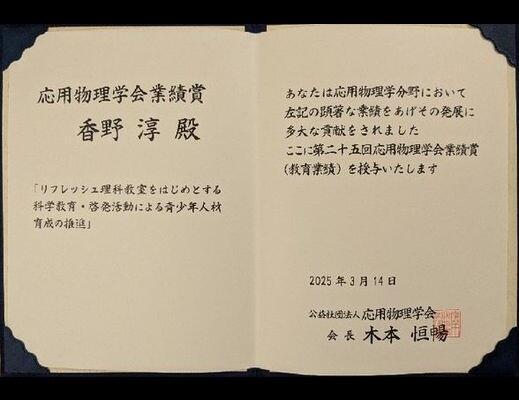 応用物理学会業績賞
香野 淳 殿
「リフレッシュ理科教室をはじめとする
科学教育・啓発活動による青少年人材
育成の推進」
あなたは応用物理学分野において
左記の顕著な業績をあげその発展に
多大な貢献をされました
ここに第二十五回応用物理学会業績賞
(教育業績)を授与いたします
2025年3月14日
公益社団法人 応用物理学会
会長 木本 恒暢